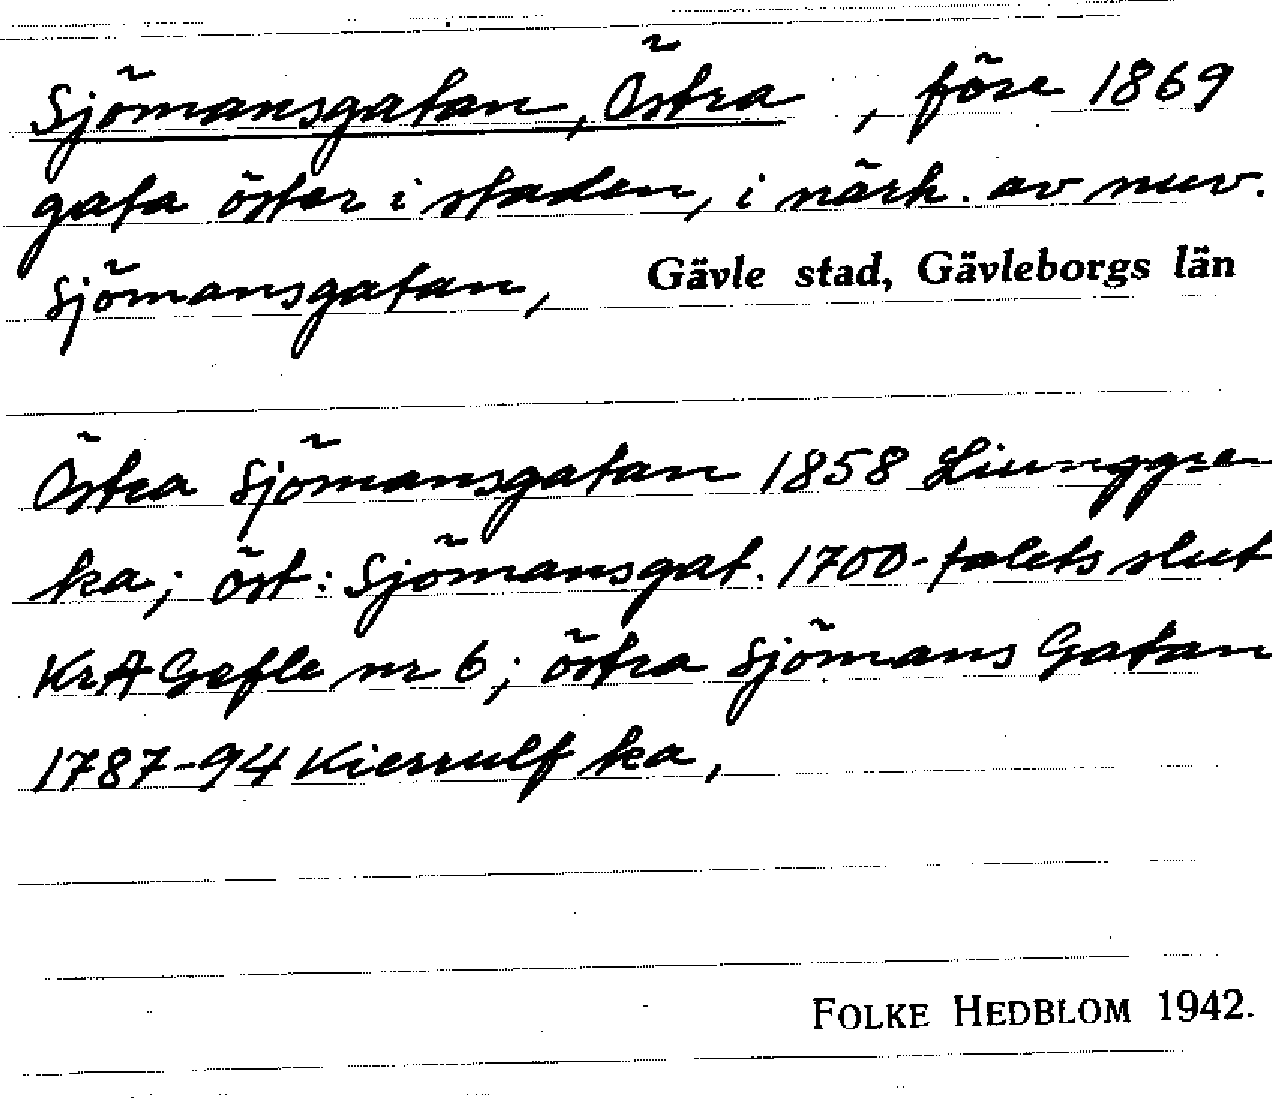 Sjömansgatan, Östra , före 1869
gata öster i staden, i närh. av nuv.
Sjömansgatan, Gävle stad, Gävleborgs län
Östra Sjömansgatan 1858 Liunggren
ka; öst: Sjömansgat. 1700-talets slut
KrA Gefle nr 6; östra Sjömans Gatan
1787-94 Kierrulf ka,
FOLKE HEDBLOM 1942.